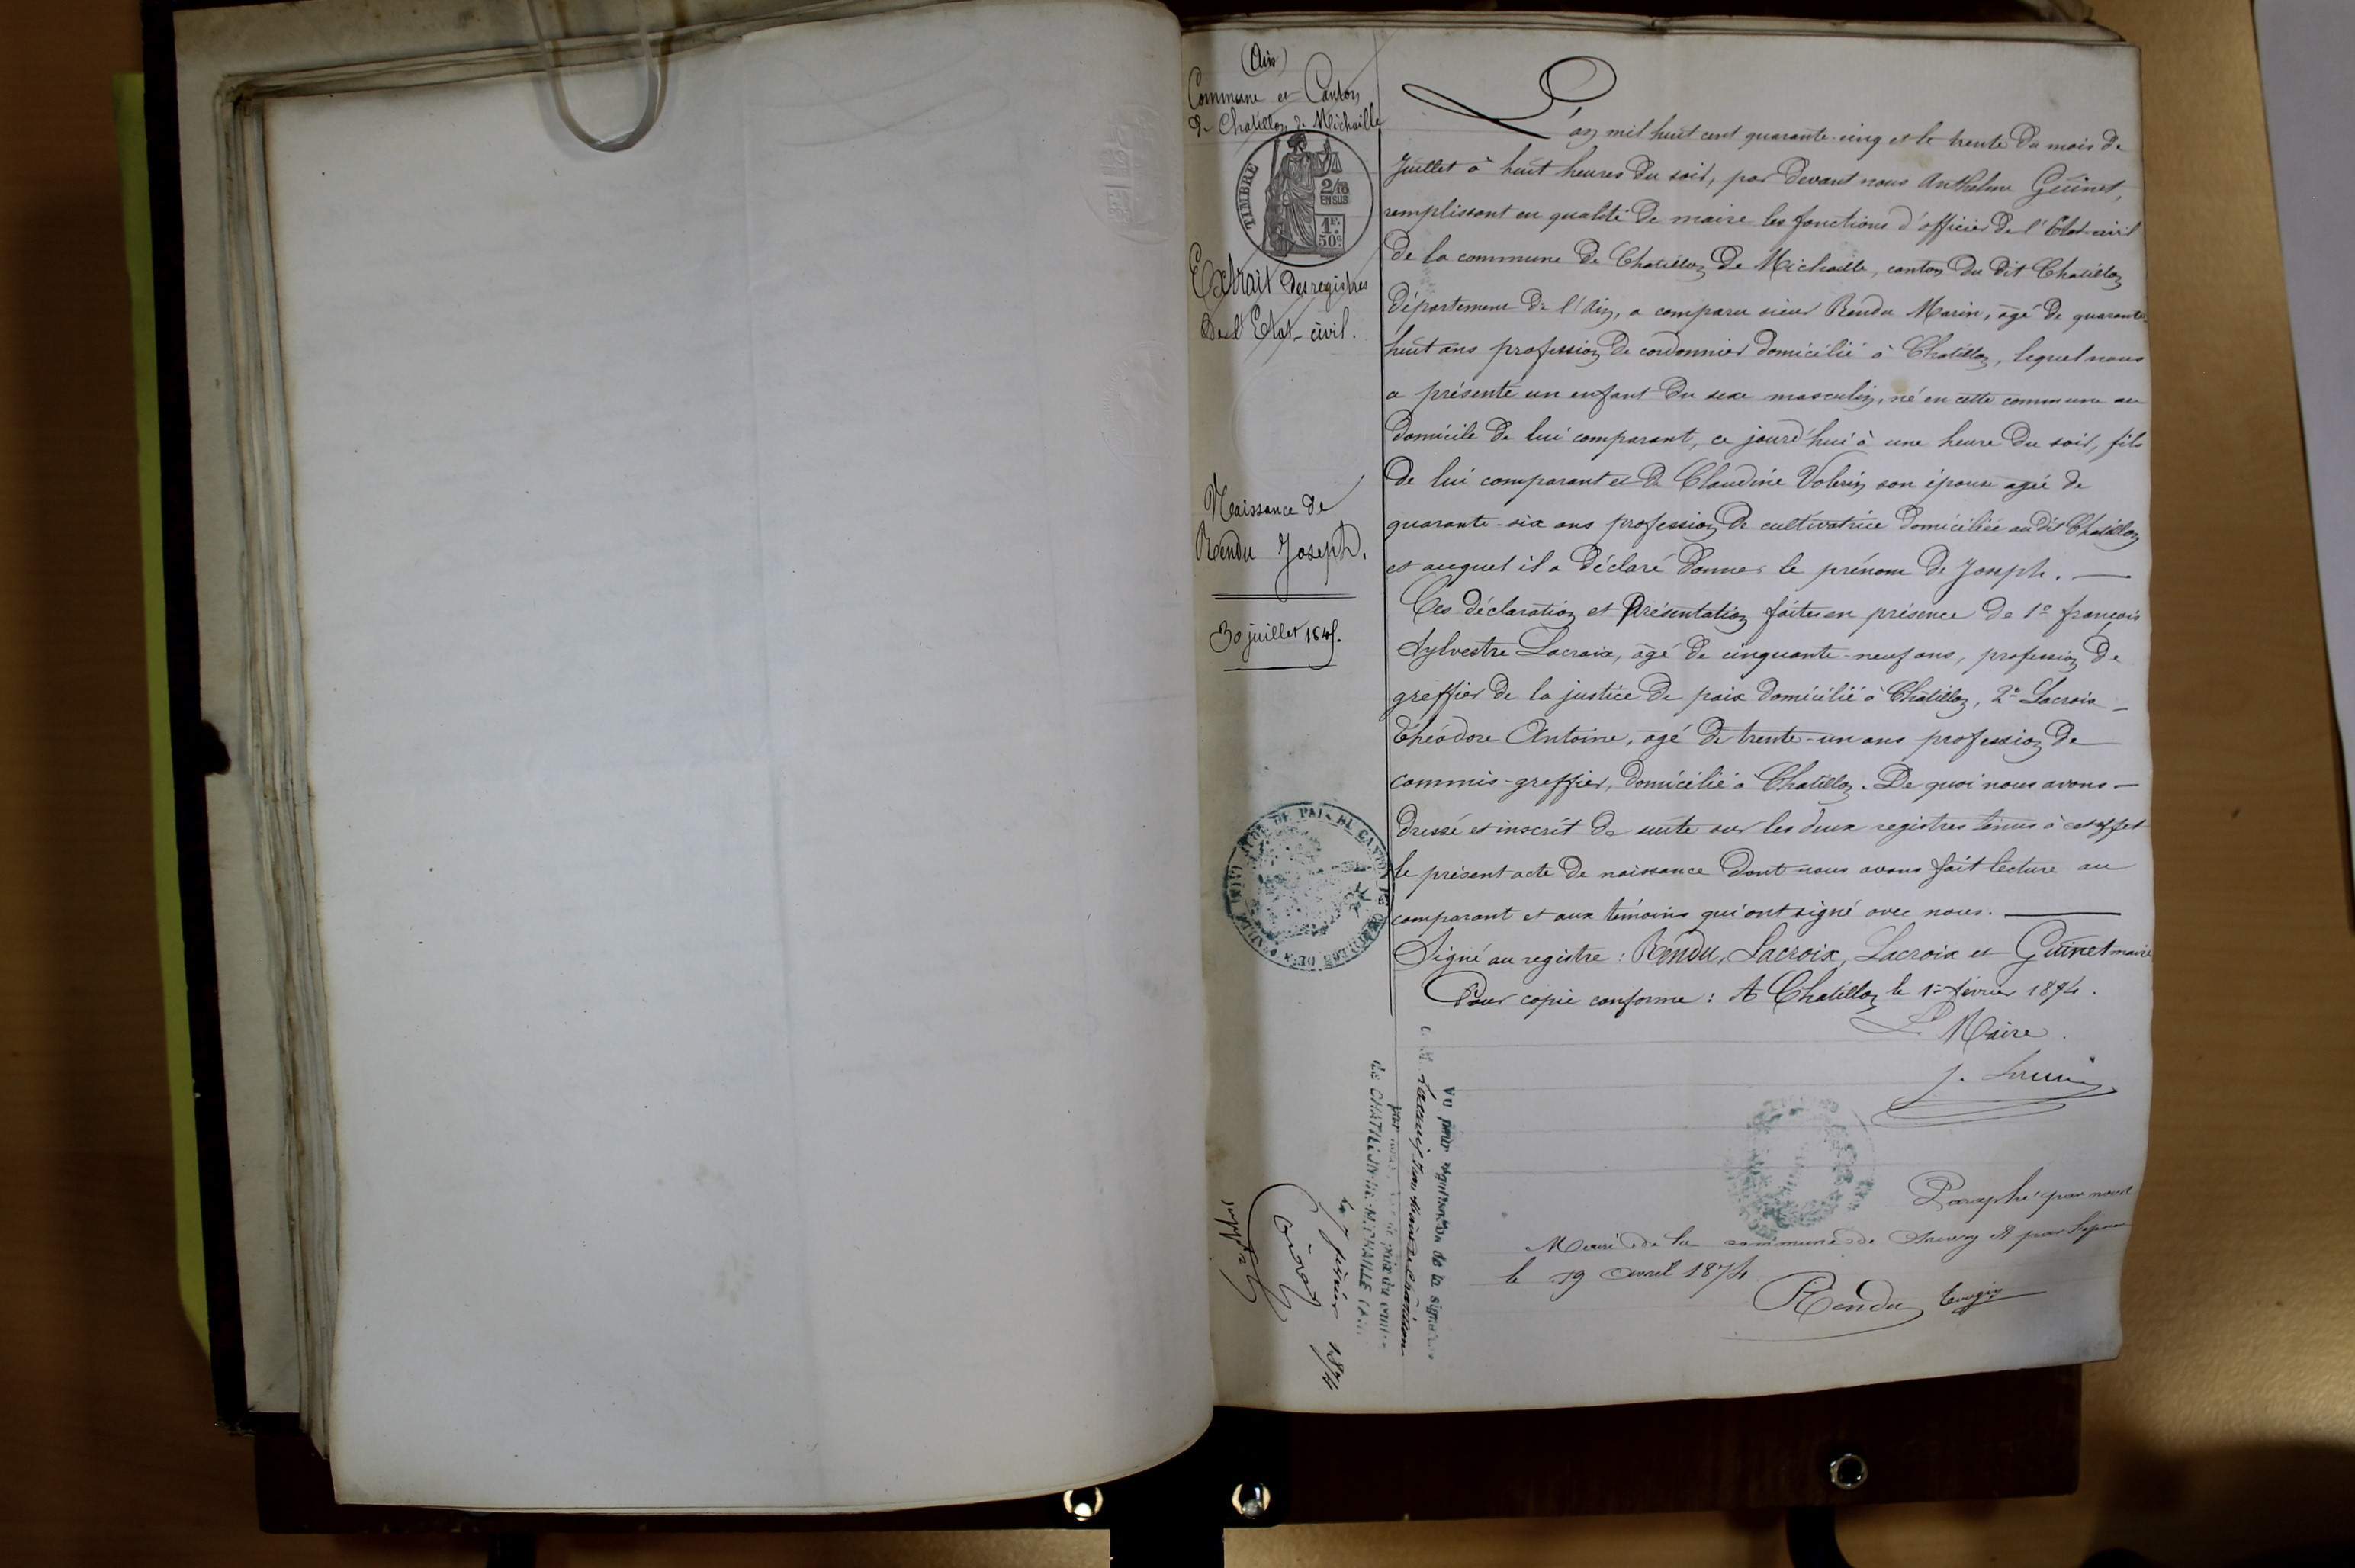 (Ain)
Commune et Canton
de Chatillon de Michaille
TIMBRE
2/10
EN SUS
1F.
50c.
Extrait des registres
de l'Etat-civil.
Naissance de
Rendu Joseph.
30 juillet 1845.
L'an mil huit cent quarante-cinq et le trente du mois de
Juillet à huit heures du soir, par devant nous Anthelme Guinet,
remplissant en qualité de maire les fonctions d'officier de l'Etat-civil
de la commune de Chatillon de Michaille, canton du dit Chatillon
département de l'Ain, a comparu sieur Rendu Marin, âgé de quarante
huit ans profession de cordonnier domicilié à Chatillon, lequel nous
a présenté un enfant du sexe masculin, né en cette commune au
domicile de lui comparant, ce jourd'hui à une heure du soir, fils
de lui comparant et de Claudine Volerin son épouse agée de
quarante-six ans profession de cultivatrice domiciliée au dit Chatillon
et auquel il a déclaré donner le prénom de Joseph.
Ces déclaration et Présentation faites en présence de 1º françois
Sylvestre Lacroix, âgé de cinquante-neuf ans, profession de
greffier de la justice de paix domicilié à Châtillon, 2º Lacroix
Théodore Antoine, agé de trente-un ans profession de
commis-greffier, domicilié à Chatillon. De quoi nous avons
dressé et inscrit de suite sur les deux registres tenus à cet effet
le présent acte de naissance dont nous avons fait lecture au
comparant et aux témoins qui ont signé avec nous.
Signé au registre : Rendu, Lacroix, Lacroix et Guinet maire
Pour copie conforme : A Chatillon le 1er février 1874.
Le Maire.
Vu pour légalisation de la signature
maire de Chatillon
par nous juge de paix du canton
de CHATILLON-de-MICHAILLE (Ain)
le 7 février 1874
Paraphé par nous
Maire de la commune de et par l'épouse
le 19 avril 1874
Rendu